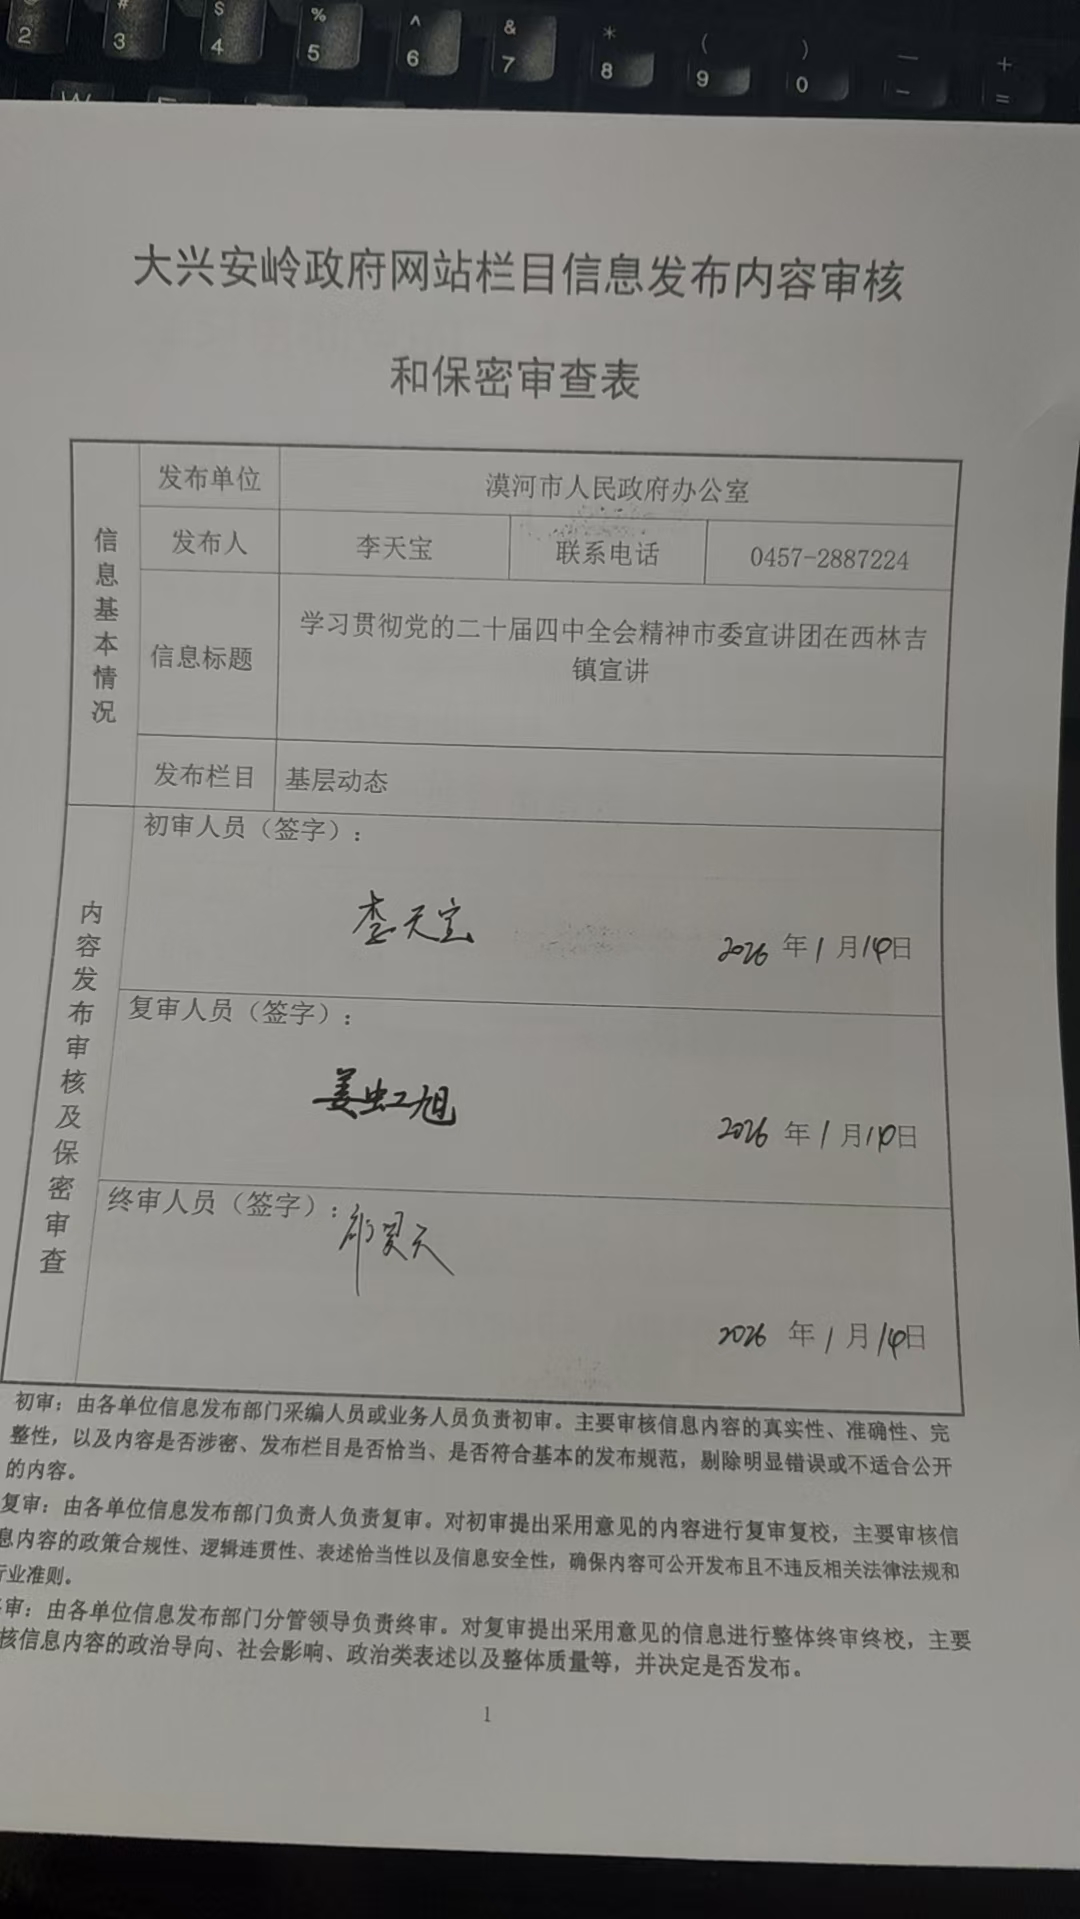 @ # $ % ^ & * ( ) — +
2 3 4 5 6 7 8 9 0 - =
W E
大兴安岭政府网站栏目信息发布内容审核
和保密审查表
信息基本情况
发布单位 漠河市人民政府办公室
发布人 李天宝 联系电话 0457-2887224
信息标题 学习贯彻党的二十届四中全会精神市委宣讲团在西林吉
镇宣讲
发布栏目 基层动态
内容发布审核及保密审查
初审人员（签字）：
李天宝
2026 年 1 月 14 日
复审人员（签字）：
姜虹旭
2026 年 1 月 14 日
终审人员（签字）：
2026 年 1 月 14 日
初审：由各单位信息发布部门采编人员或业务人员负责初审。主要审核信息内容的真实性、准确性、完
整性，以及内容是否涉密、发布栏目是否恰当、是否符合基本的发布规范，剔除明显错误或不适合公开
的内容。
复审：由各单位信息发布部门负责人负责复审。对初审提出采用意见的内容进行复审复校，主要审核信
息内容的政策合规性、逻辑连贯性、表述恰当性以及信息安全性，确保内容可公开发布且不违反相关法律法规和
行业准则。
审：由各单位信息发布部门分管领导负责终审。对复审提出采用意见的信息进行整体终审终校，主要
核信息内容的政治导向、社会影响、政治类表述以及整体质量等，并决定是否发布。
1